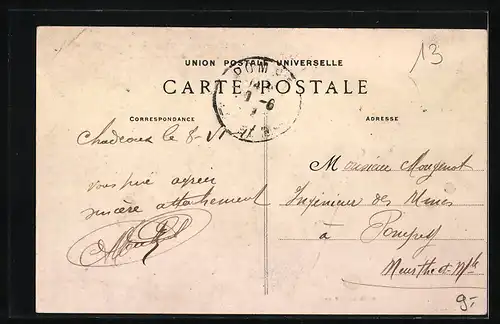 13
UNION POSTALE UNIVERSELLE
CARTE POSTALE
CORRESPONDANCE
ADRESSE
le 8
vous prie agréer
sincère attachement
Monsieur Mougenot
Ingénieur des Mines
à Pompey
Meurthe et Mlle
9-